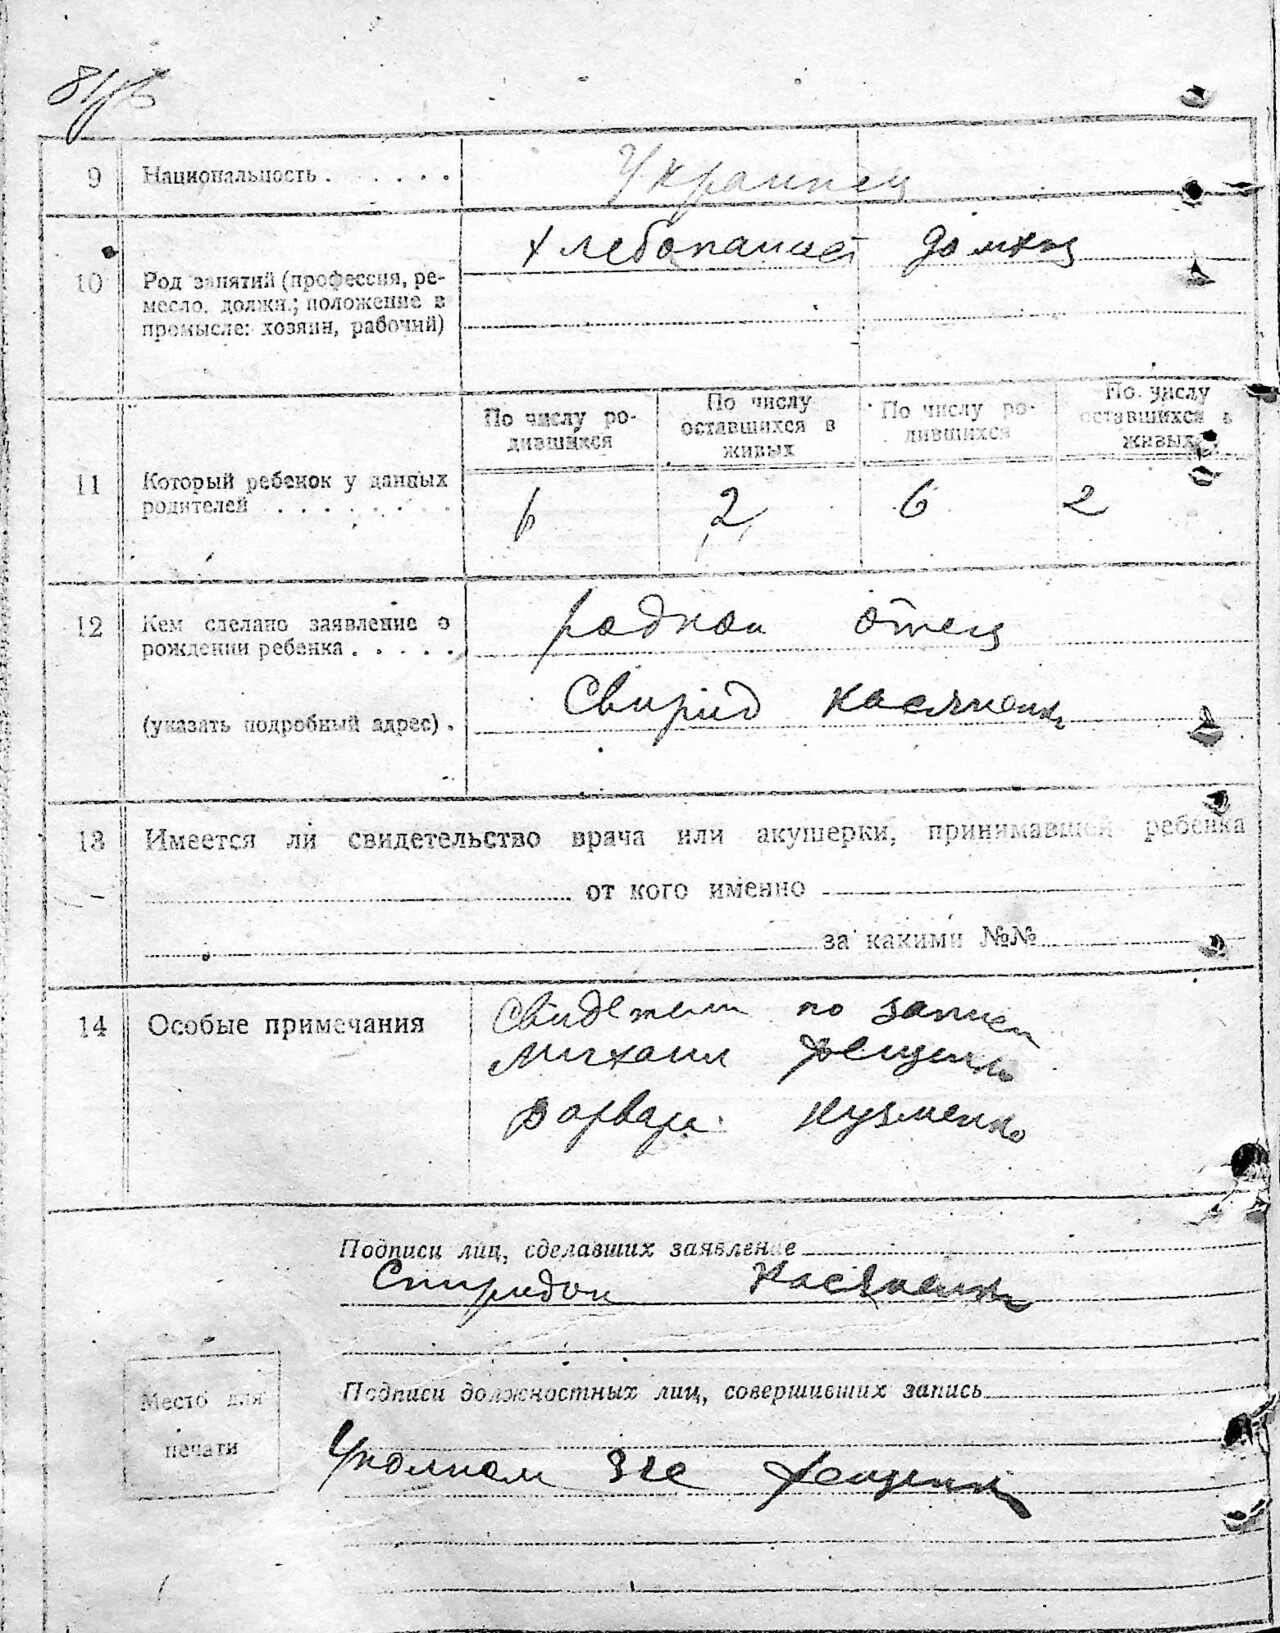 9 Национальность . . . . . Украинец
10 Род занятий (профессия, ре-
месло, должн.; положение в
промысле: хозяин, рабочий)
хлебопашест домхоз
По числу ро-
дившихся
По числу
оставшихся в
живых
По числу ро-
дившихся
По числу
оставшихся в
живых
11 Который ребенок у данных
родителей . . . . . . . .
6 2 6 2
12 Кем сделано заявление о
рождении ребенка . . . . .
родной отец
(указать подробный адрес) .
Свирид Касяненко
13 Имеется ли свидетельство врача или акушерки, принимавшей ребенка
от кого именно
за какими №№
14 Особые примечания
Свидетели по записи
Михаил
Варвара Кузменко
Подписи лиц, сделавших заявление
Спиридон Касяненко
Подписи должностных лиц, совершивших запись
Место для
печати